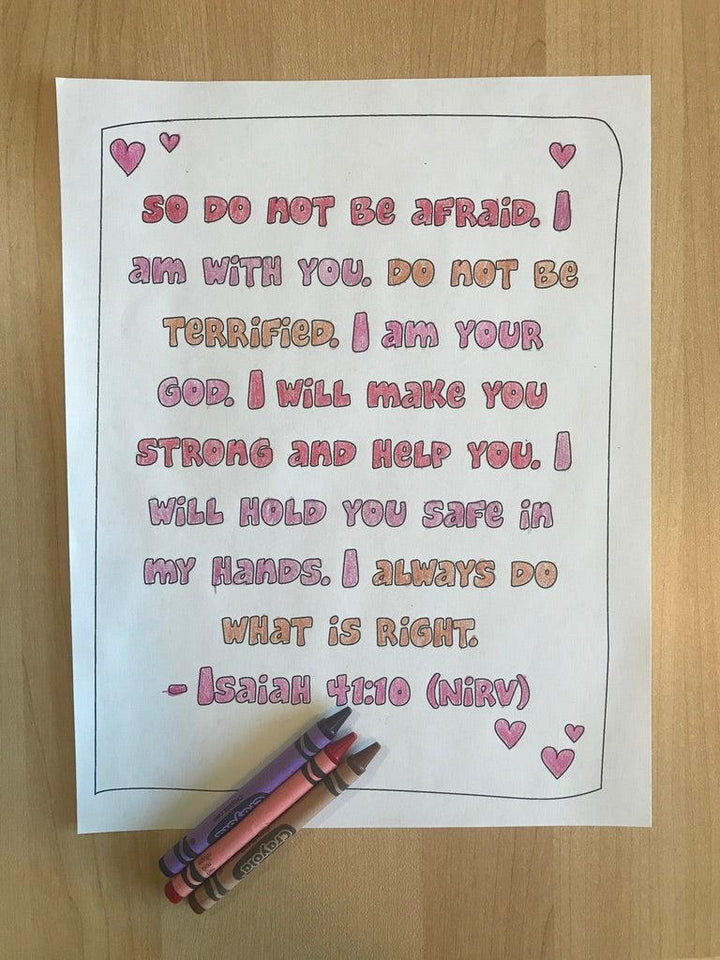 So do not be afraid. I
am with you. Do not be
terrified. I am your
God. I will make you
strong and help you. I
will hold you safe in
my hands. I always do
what is right.
- Isaiah 41:10 (NIRV)
Crayola